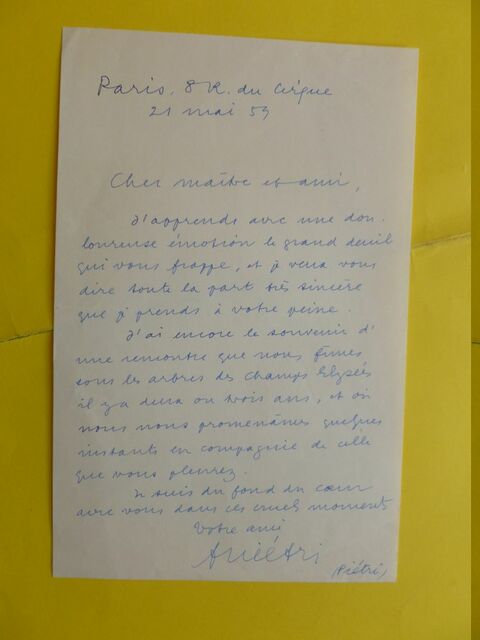 Paris, 8 R. du Cirque
21 mai 59
Cher maître et ami,
J'apprends avec une dou-
loureuse émotion le grand deuil
qui vous frappe, et je veux vous
dire toute la part très sincère
que je prends à votre peine.
J'ai encore le souvenir d'
une rencontre que nous fîmes
sous les arbres des Champs Elysées
il y a deux ou trois ans, et où
nous nous promenâmes quelques
instants en compagnie de celle
que vous pleurez.
Je suis du fond du cœur
avec vous dans ces cruels moments
Votre ami
(Piétri)